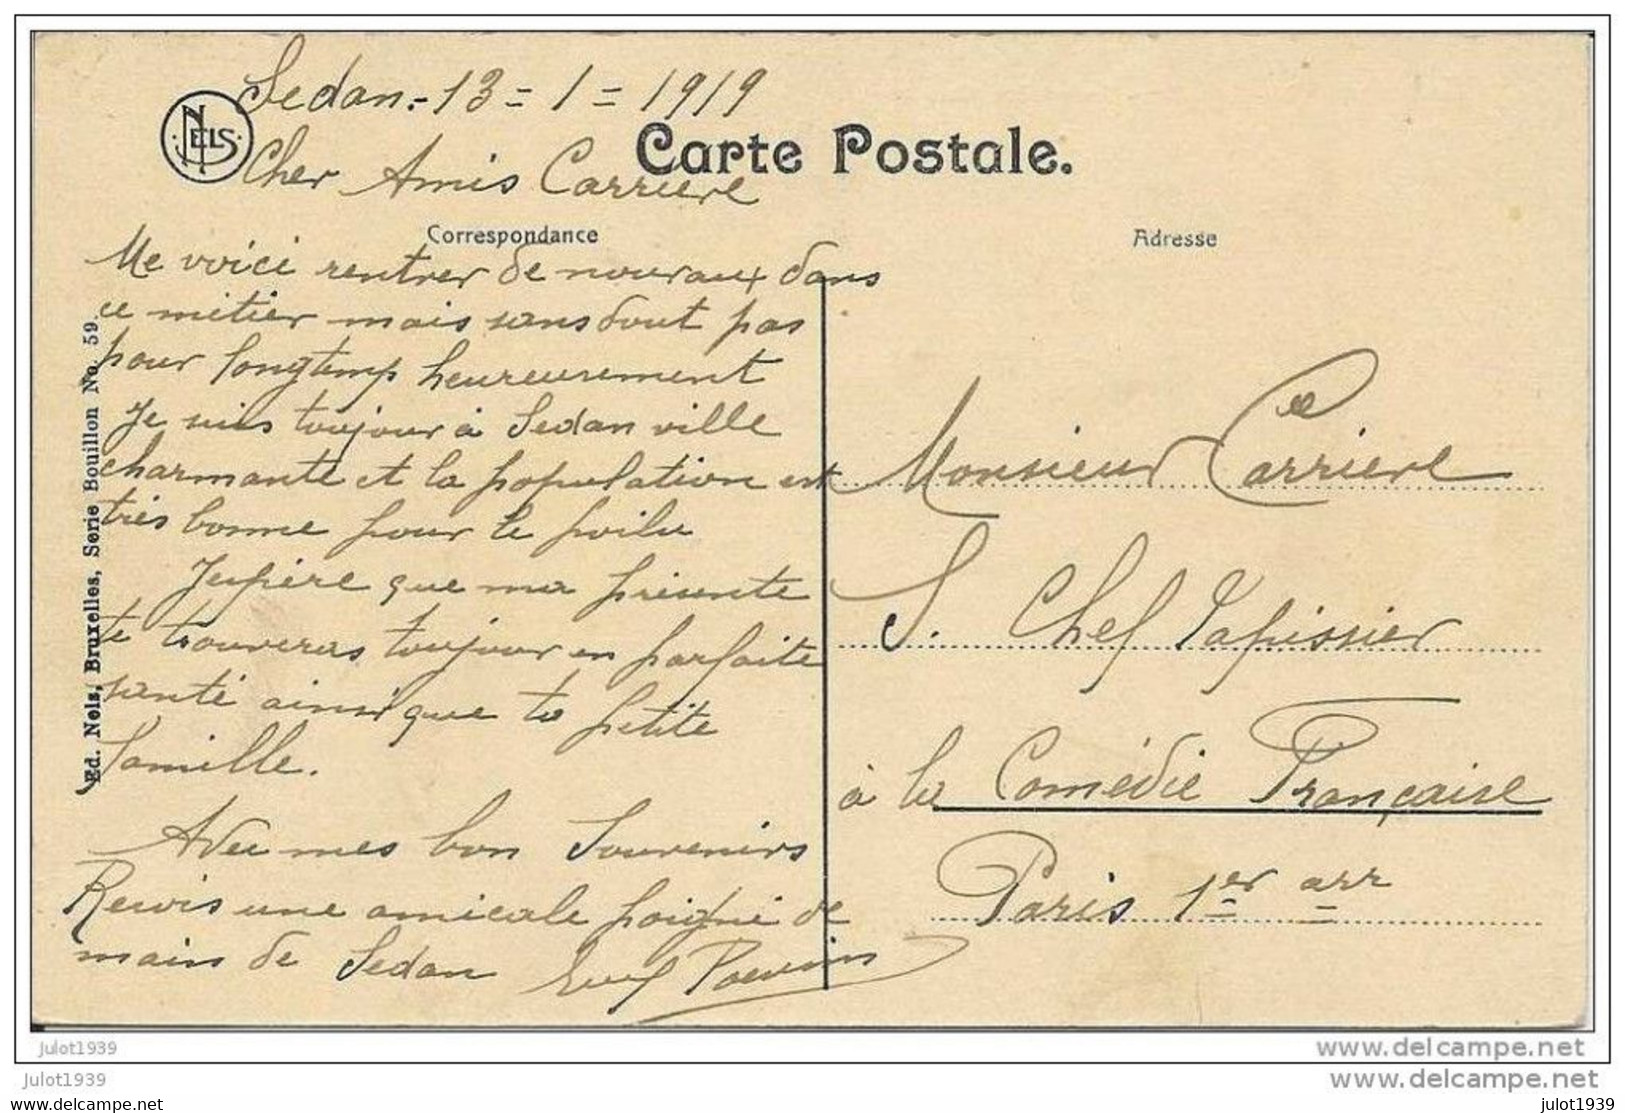 Sedan.- 13 = 1 = 1919
NELS
Carte Postale.
Cher Amis Carriere
Correspondance
Me voici rentrer de nouvaux dans
ce métier mais sans dout pas
pour longtemp heureusement
Je suis toujour à Sedan ville
charmante et la population est
très bonne pour le poilu
Jespère que ma présente
te trouveras toujour en parfaite
santé ainsi que ta petite
famille.
Avec mes bon Souvenirs
Recois une amicale poigné de
main de Sedan
Ed. Nels, Bruxelles, Serie Bouillon No. 59.
Adresse
Monsieur Carriere
S. Chef Tapissier
à la Comédie Française
Paris 1er arr
julot1939
www.delcampe.net
julot1939
www.delcampe.net
www.delcampe.net
julot1939